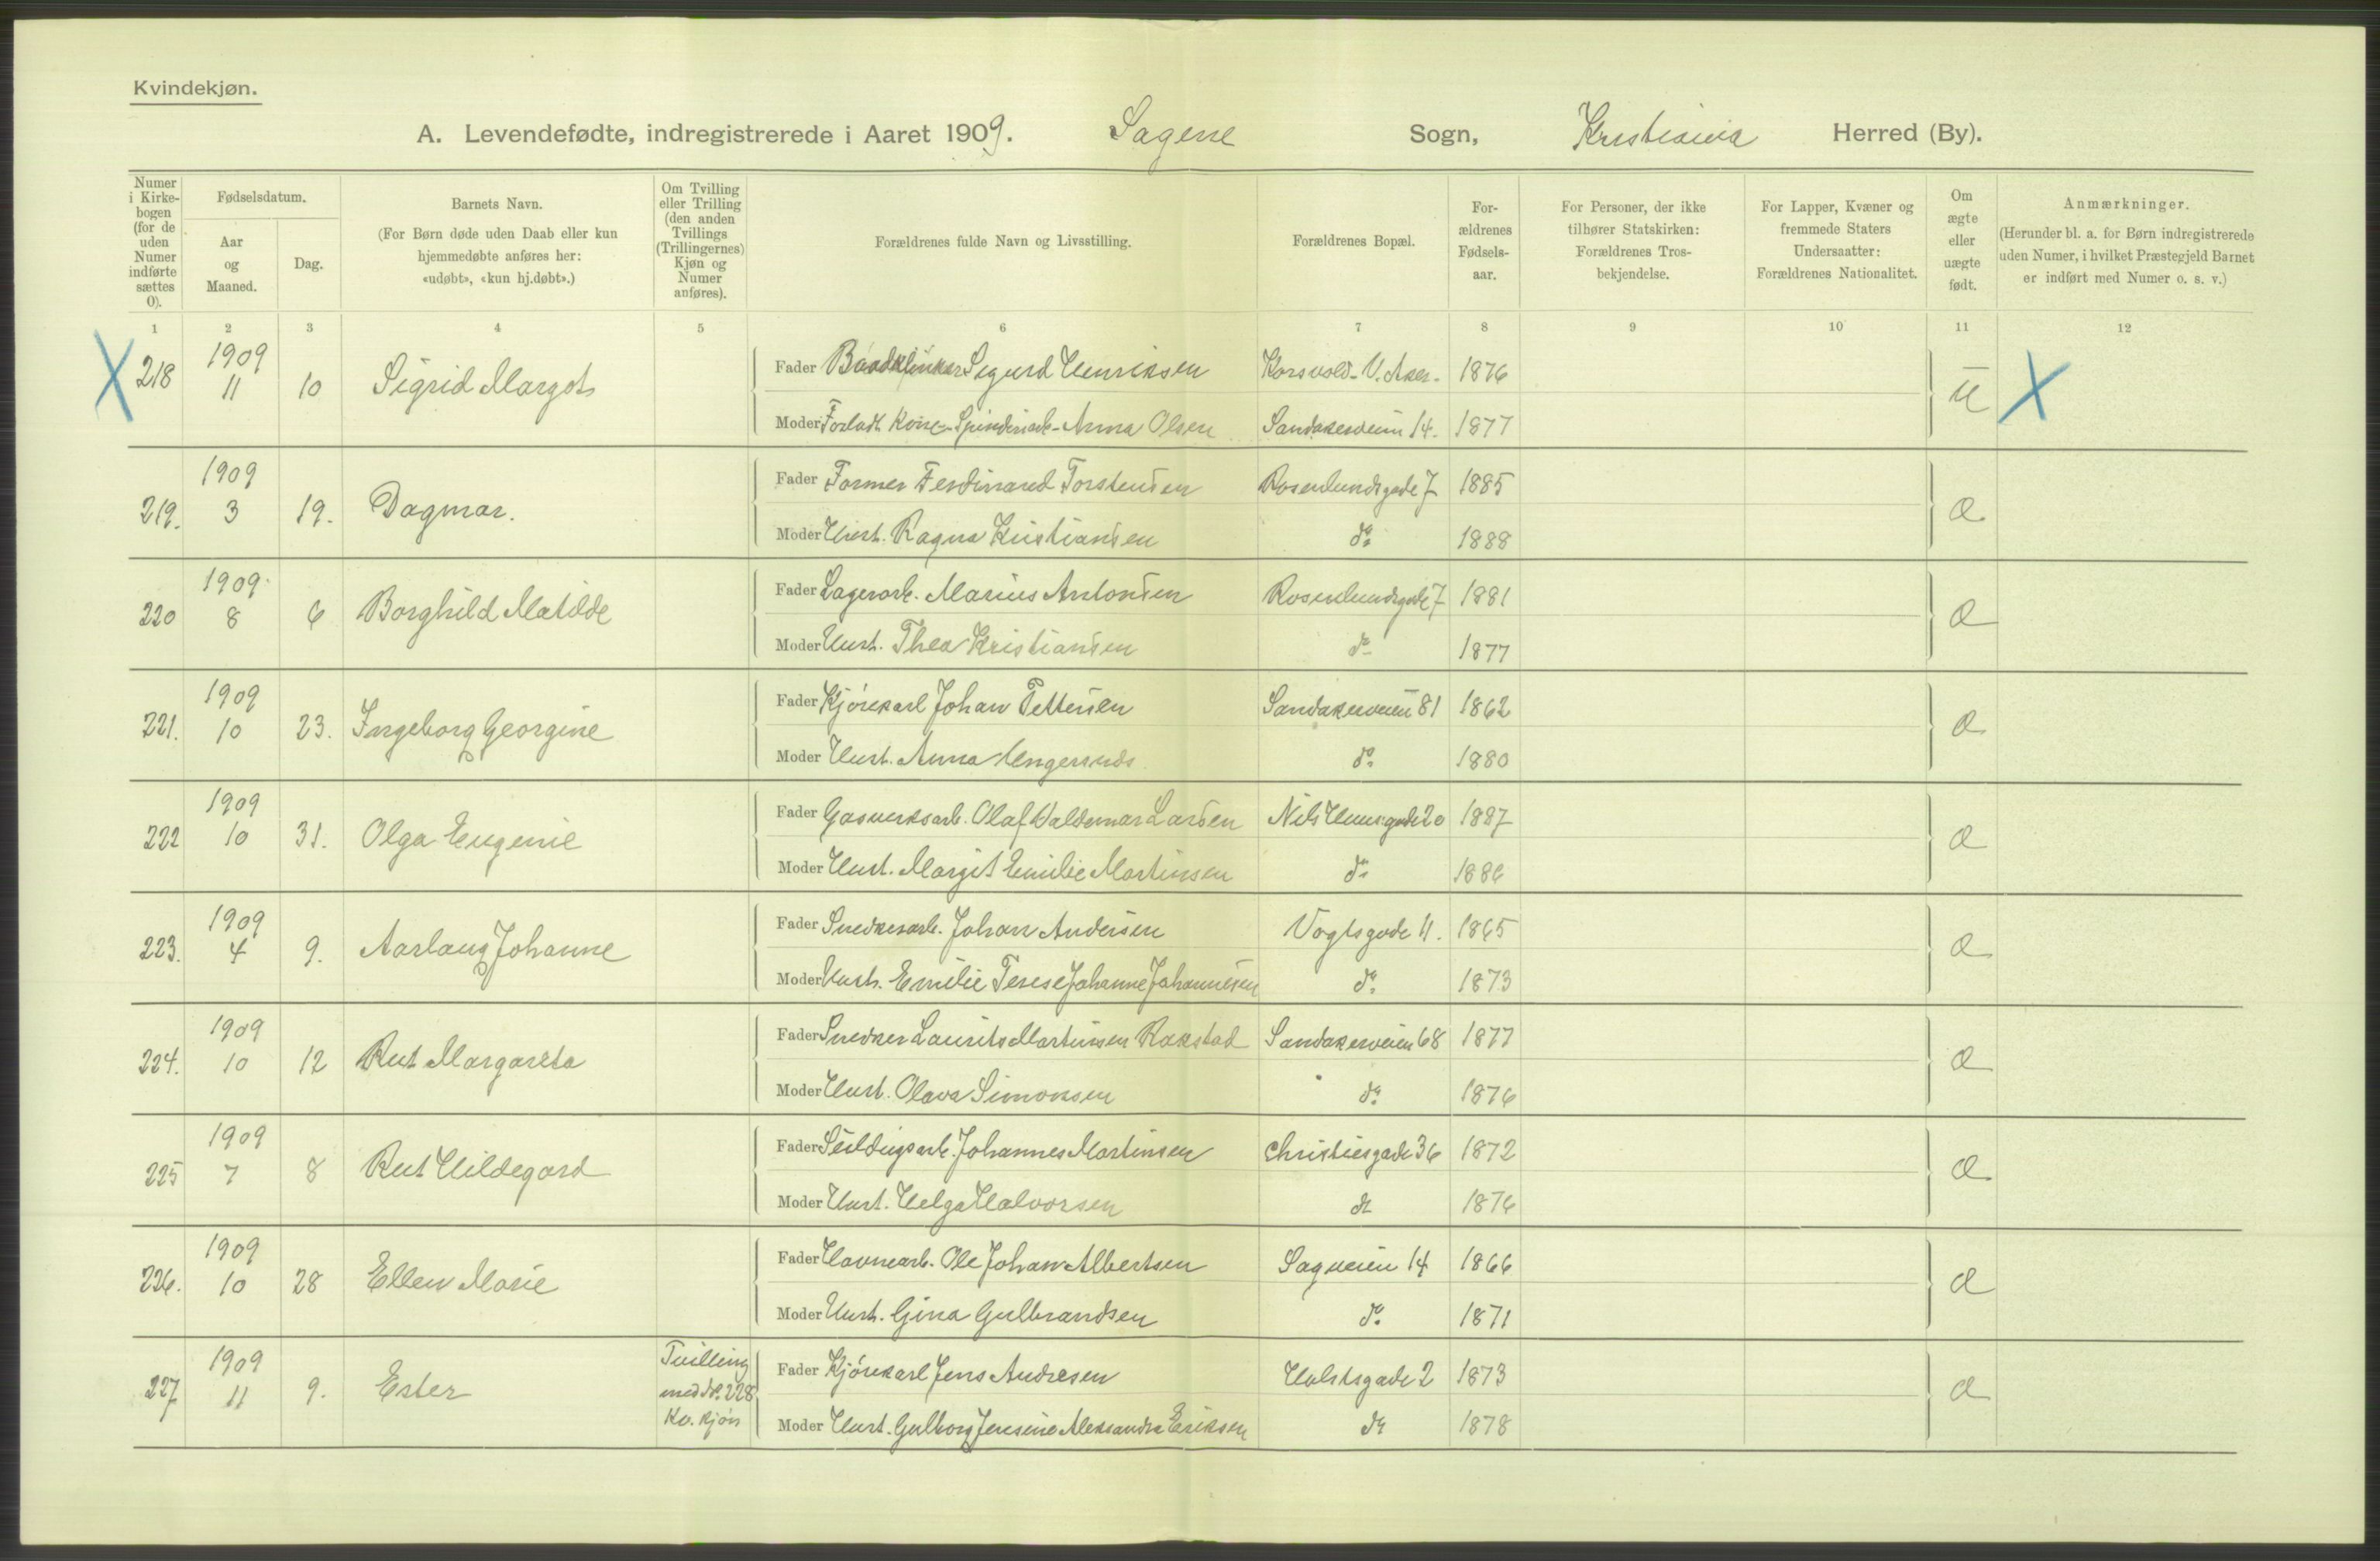 Kvindekjøn.
A. Levendefødte, indregistrerede i Aaret 1909. Sagene Sogn, Kristiania Herred (By).
Numer i Kirkebogen (for de uden Numer indførte sættes 0).
Fødselsdatum.
Aar og Maaned.
Dag.
Barnets Navn.
(For Børn døde uden Daab eller kun hjemmedøbte anføres her: «udøbt», «kun hj.døbt».)
Om Tvilling eller Trilling (den anden Tvillings (Trillingernes) Kjøn og Numer anføres).
Forældrenes fulde Navn og Livsstilling.
Forældrenes Bopæl.
Forældrenes Fødselsaar.
For Personer, der ikke tilhører Statskirken: Forældrenes Trosbekjendelse.
For Lapper, Kvæner og fremmede Staters Undersaatter: Forældrenes Nationalitet.
Om ægte eller uægte født.
Anmærkninger.
(Herunder bl. a. for Børn indregistrerede uden Numer, i hvilket Præstegjeld Barnet er indført med Numer o. s. v.)
1 2 3 4 5 6 7 8 9 10 11 12
X 218 1909 11 10 Sigrid Margot Fader Sigurd Henriksen Korsvold - V. Aker - 1876 U X
Moder Forladt Kone - Spinderiarb - Anna Olsen Sandakerveien 14. 1877
219. 1909 3 19. Dagmar. Fader Former Ferdinand Torstensen Rosenlundsgade 7 1885 Æ
Moder Hust. Ragna Kristiansen do 1888
220 1909 8 6 Borghild Matilde Fader Lagerarb. Marius Antonsen Rosenlundsgade 7 1881 Æ
Moder Hust. Thea Kristiansen do 1877
221. 1909 10 23. Ingeborg Georgine Fader Kjørekarl Johan Pettersen Sandakerveien 81 1862 Æ
Moder Hust. Anna do 1880
222 1909 10 31. Olga Eugenie Fader Gasverksarb. Olaf Valdemar Larsen Nils Huusgade 20 1887 Æ
Moder Hust. Margit Emilie Martinsen do 1886
223. 1909 4 9. Aarlaug Johanne Fader Snedkerarb. Johan Andersen Vogtsgade 11. 1865 Æ
Moder Hust. Emilie Terese Johanne Johannesen do 1873
224. 1909 10 12 Rut Margareta Fader Snedker Laurits Martinsen Rakstad Sandakerveien 68 1877 Æ
Moder Hust. Olava Simonsen do 1876
225 1909 7 8 Rut Hildegard Fader Johannes Martinsen Christiesgade 36 1872 Æ
Moder Hust. Helga Halvorsen do 1876
226. 1909 10 28 Ellen Marie Fader Havnearb. Ole Johan Albertsen Sagveien 14 1866 Æ
Moder Hust. Gina Gulbrandsen do 1871
227 1909 11 9. Ester Tvilling med No. 228 Kv. kjøn Fader Kjørekarl Jens Andresen Holstsgade 2 1873 Æ
Moder Hust. Gulborg Jensine Aleksandra Eriksen do 1878